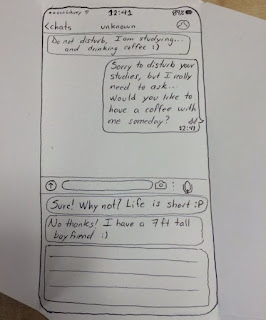 12:41 89%
<chats unknown
Do not disturb, I am studying...
and drinking coffee :)
Sorry to disturb your
studies, but I really
need to ask...
Would you like to
have a coffee with
me someday?
12:41
Sure! Why not? Life is short :P
No thanks! I have a 7ft tall
boyfriend :)